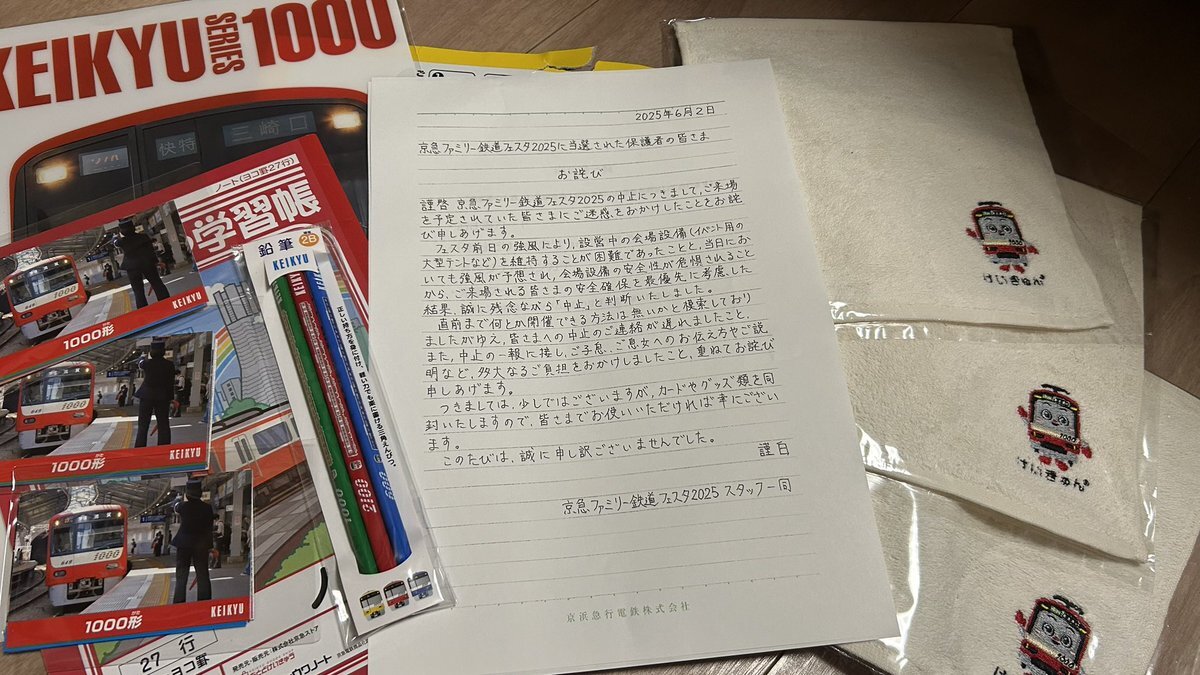 KEIKYU SERIES 1000
快特
三崎口
ノート(ヨコ罫27行)
学習帳
鉛筆 2B
KEIKYU
正しい持ち方を身に付け、軽い力でも楽に書ける三角えんぴつ。
1000形
KEIKYU
1000形
KEIKYU
1000形
KEIKYU
27 行
ヨコ罫
2025年6月2日
京急ファミリー鉄道フェスタ2025に当選された保護者の皆さま
お詫び
謹啓 京急ファミリー鉄道フェスタ2025の中止につきまして、ご来場
を予定されていた皆さまにご迷惑をおかけしたことをお詫
び申しあげます。
フェスタ前日の強風により、設営中の会場設備(イベント用の
大型テントなど)を維持することが困難であったことと、当日にお
いても強風が予想され、会場設備の安全性が危惧されること
から、ご来場される皆さまの安全確保を最優先に考慮した
結果、誠に残念ながら「中止」と判断いたしました。
直前まで何とか開催できる方法は無いかと模索しており
ましたがゆえ、皆さまへの中止のご連絡が遅れましたこと、
また、中止の一報に接し、ご子息、ご息女へのお伝え方やご説
明など、多大なるご負担をおかけしましたこと、重ねてお詫び
申しあげます。
つきましては、少しではございますが、カードやグッズ類を同
封いたしますので、皆さまでお使いいただければ幸にござい
ます。
このたびは、誠に申し訳ございませんでした。
謹白
京急ファミリー鉄道フェスタ2025 スタッフ一同
京浜急行電鉄株式会社
けいきゅん
けいきゅん
けいきゅん